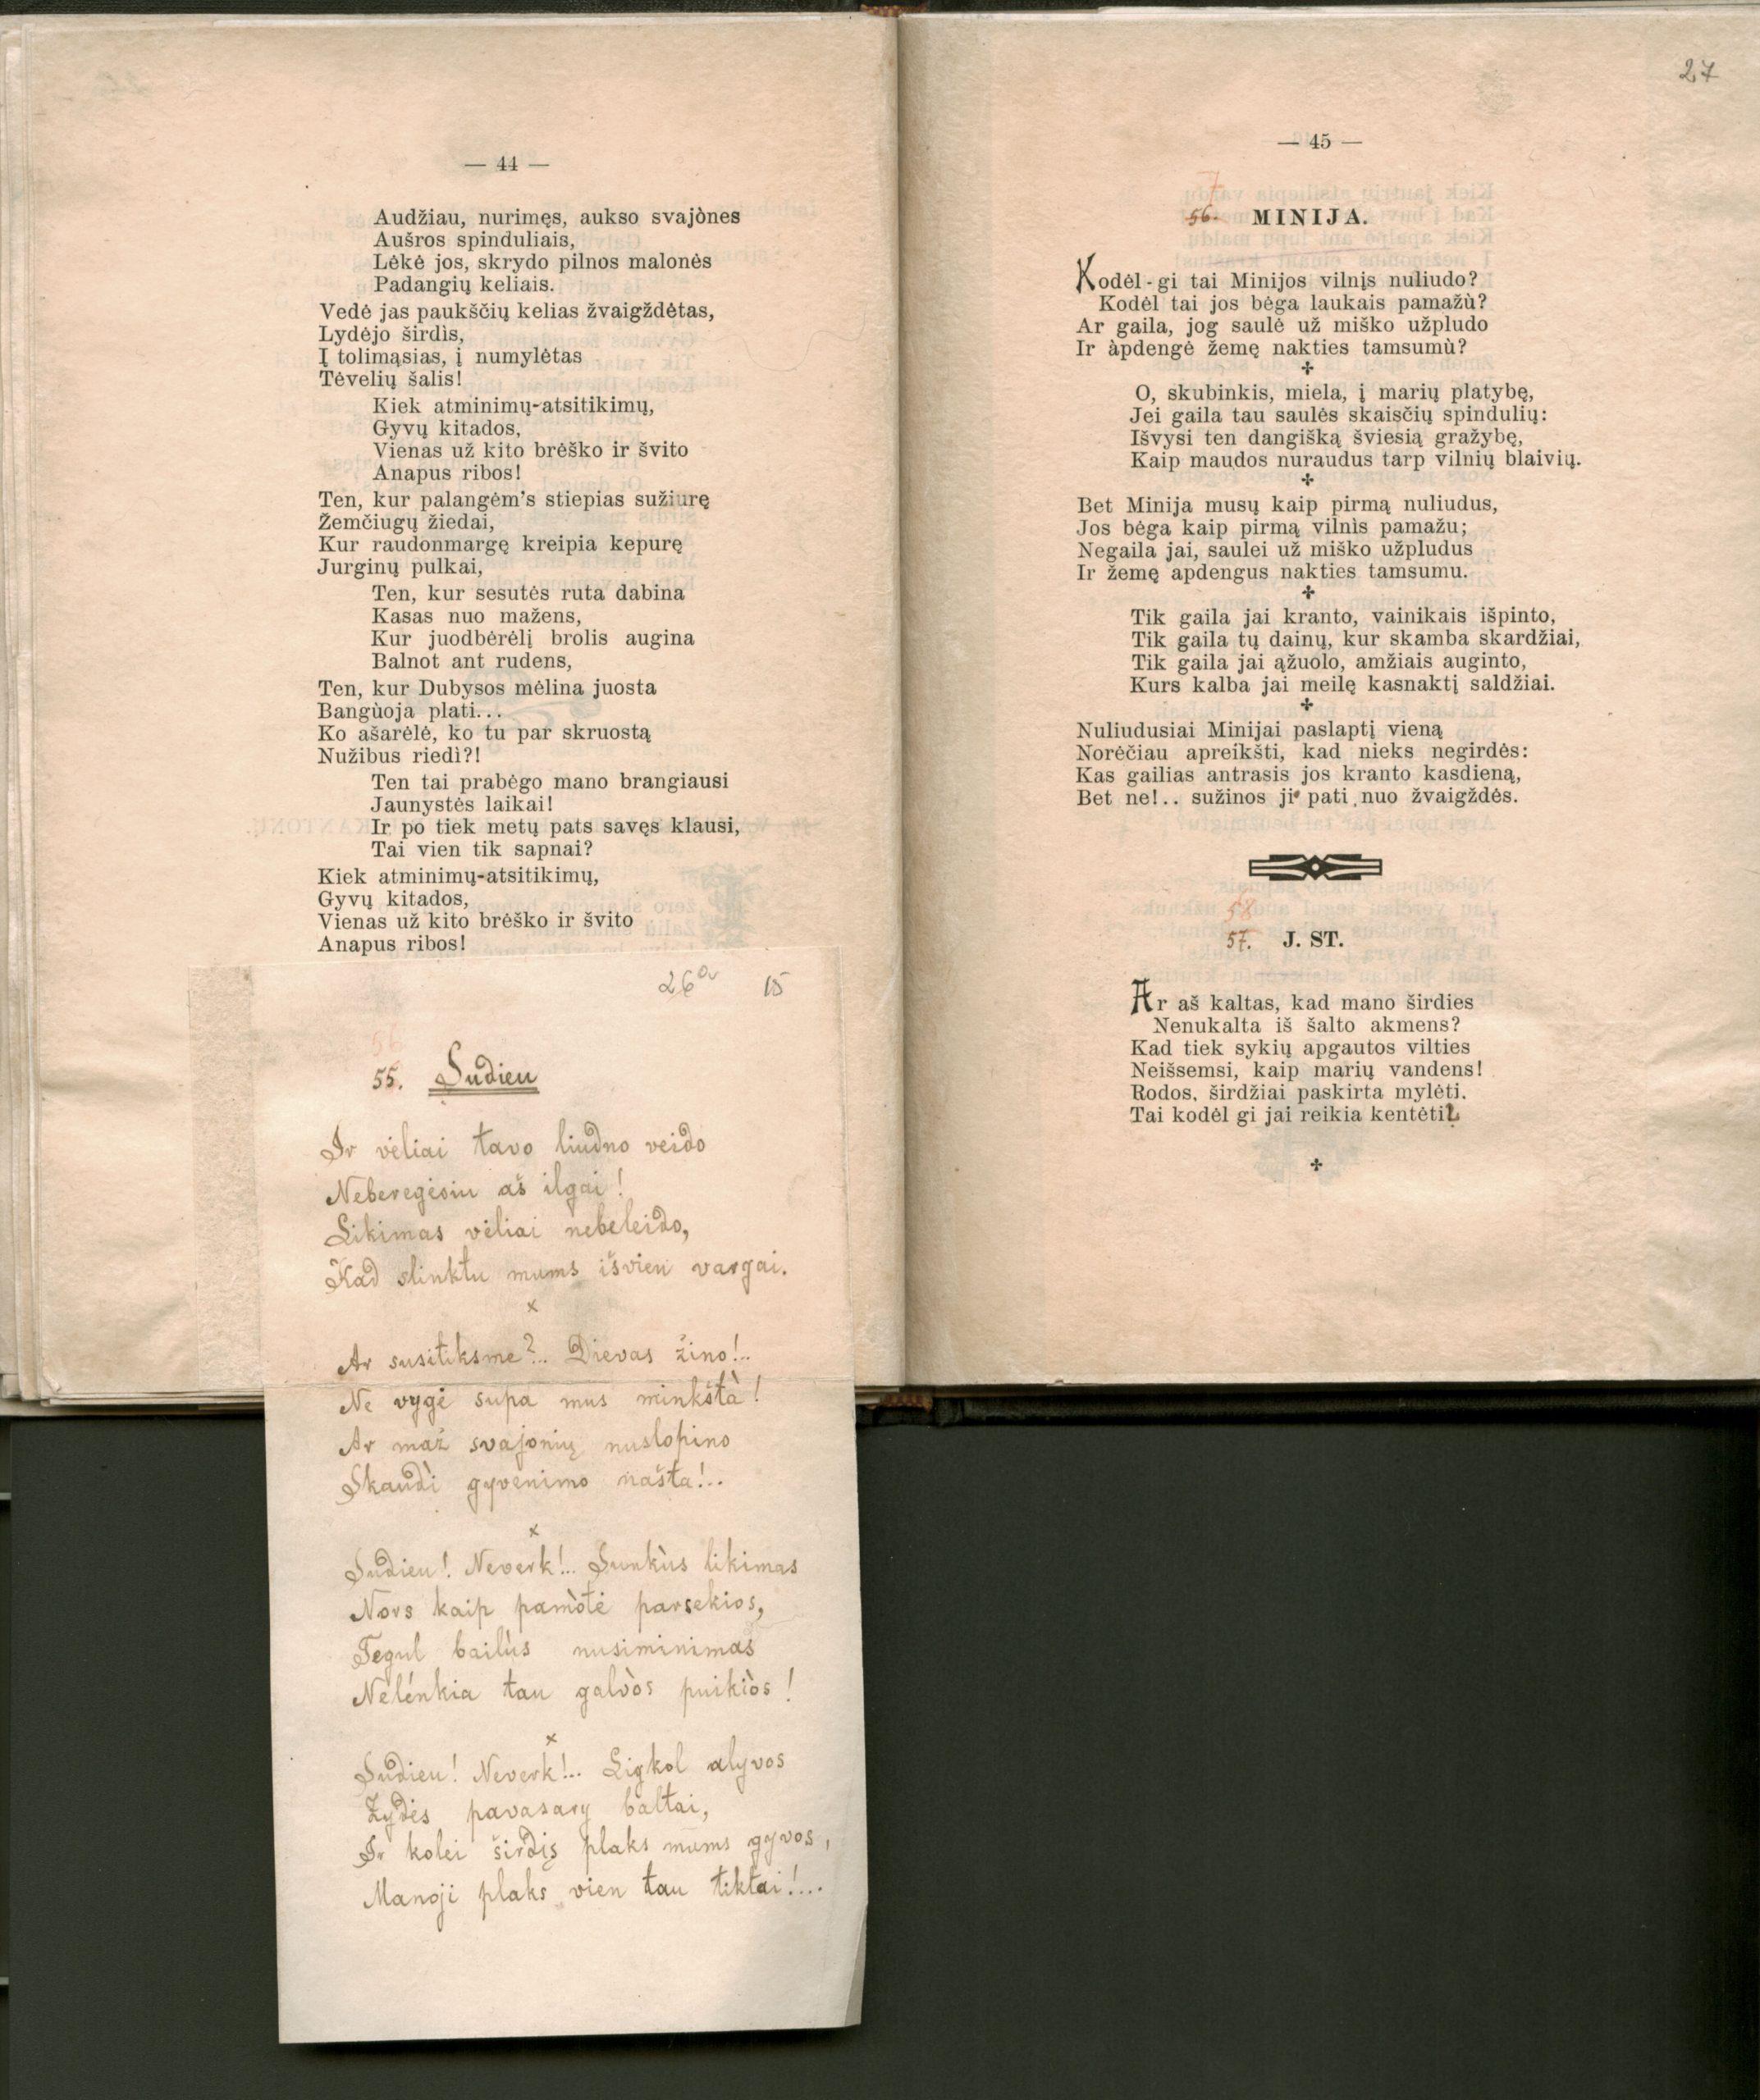 — 44 —
Audžiau, nurimęs, aukso svajònes
Aušros spinduliais,
Lėkė jos, skrydo pilnos malonės
Padangių keliais.
Vedė jas paukščių kelias žvaigždėtas,
Lydėjo širdìs,
Į tolimąsias, į numylėtas
Tėvelių šalis!
Kiek atminimų-atsitikimų,
Gyvų kitados,
Vienas už kito brėško ir švito
Anapus ribos!
Ten, kur palangėm's stiepias sužiurę
Žemčiugų žiedai,
Kur raudonmargę kreipia kepurę
Jurginų pulkai,
Ten, kur sesutės ruta dabina
Kasas nuo mažens,
Kur juodbėrėlį brolis augina
Balnot ant rudens,
Ten, kur Dubysos mėlina juosta
Bangùoja plati...
Ko ašarėlė, ko tu par skruostą
Nužibus riedì?!
Ten tai prabėgo mano brangiausi
Jaunystės laikai!
Ir po tiek metų pats savęs klausi,
Tai vien tik sapnai?
Kiek atminimų-atsitikimų,
Gyvų kitados,
Vienas už kito brėško ir švito
Anapus ribos!
26a 15
56
55. Sudieu
Ir vėliai tavo liudno veido
Neberegėsiu aš ilgai!
Likimas vėliai nebeleido,
Kad slinktu mums išvien vargai.
×
Ar susitiksme?.. Dievas žino!..
Ne vygė supa mus minkštà!
Ar maž svajonių nuslopino
Skaudì gyvenimo našta!..
×
Sudieu! Neverk!... Sunkùs likimas
Nors kaip pamòtė parsekios,
Tegul bailùs nusiminimas
Nelénkia tau galvòs puikiòs!
×
Sudieu! Neverk!... Ligkol alyvos
Žydės pavasarų baltai,
Ir kolei širdįs plaks mums gyvos,
Manoji plaks vien tau tiktai!...
27
— 45 —
7
56. MINIJA.
Kodėl-gi tai Minijos vilnįs nuliudo?
Kodėl tai jos bėga laukais pamažù?
Ar gaila, jog saulė už miško užpludo
Ir àpdengė žemę nakties tamsumù?
O, skubinkis, miela, į marių platybę,
Jei gaila tau saulės skaisčių spindulių:
Išvysi ten dangišką šviesią gražybę,
Kaip maudos nuraudus tarp vilnių blaivių.
Bet Minija musų kaip pirmą nuliudus,
Jos bėga kaip pirmą vilnìs pamažu;
Negaila jai, saulei už miško užpludus
Ir žemę apdengus nakties tamsumu.
Tik gaila jai kranto, vainikais išpinto,
Tik gaila tų dainų, kur skamba skardžiai,
Tik gaila jai ąžuolo, amžiais auginto,
Kurs kalba jai meilę kasnaktį saldžiai.
Nuliudusiai Minijai paslaptį vieną
Norėčiau apreikšti, kad nieks negirdės:
Kas gailias antrasis jos kranto kasdieną,
Bet ne!.. sužinos ji pati nuo žvaigždės.
58
57. J. ST.
Ar aš kaltas, kad mano širdies
Nenukalta iš šalto akmens?
Kad tiek sykių apgautos vilties
Neišsemsi, kaip marių vandens!
Rodos, širdžiai paskirta mylėti.
Tai kodėl gi jai reikia kentėti?